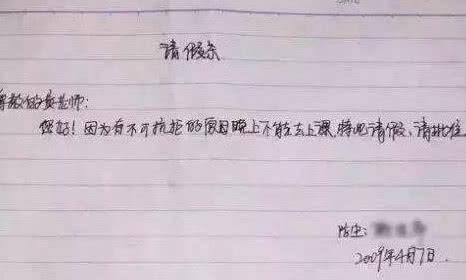 请假条
尊敬的黄老师:
您好!因为有不可抗拒的原因晚上不能去上课,特此请假,请批准
陈生:
2009年4月7日